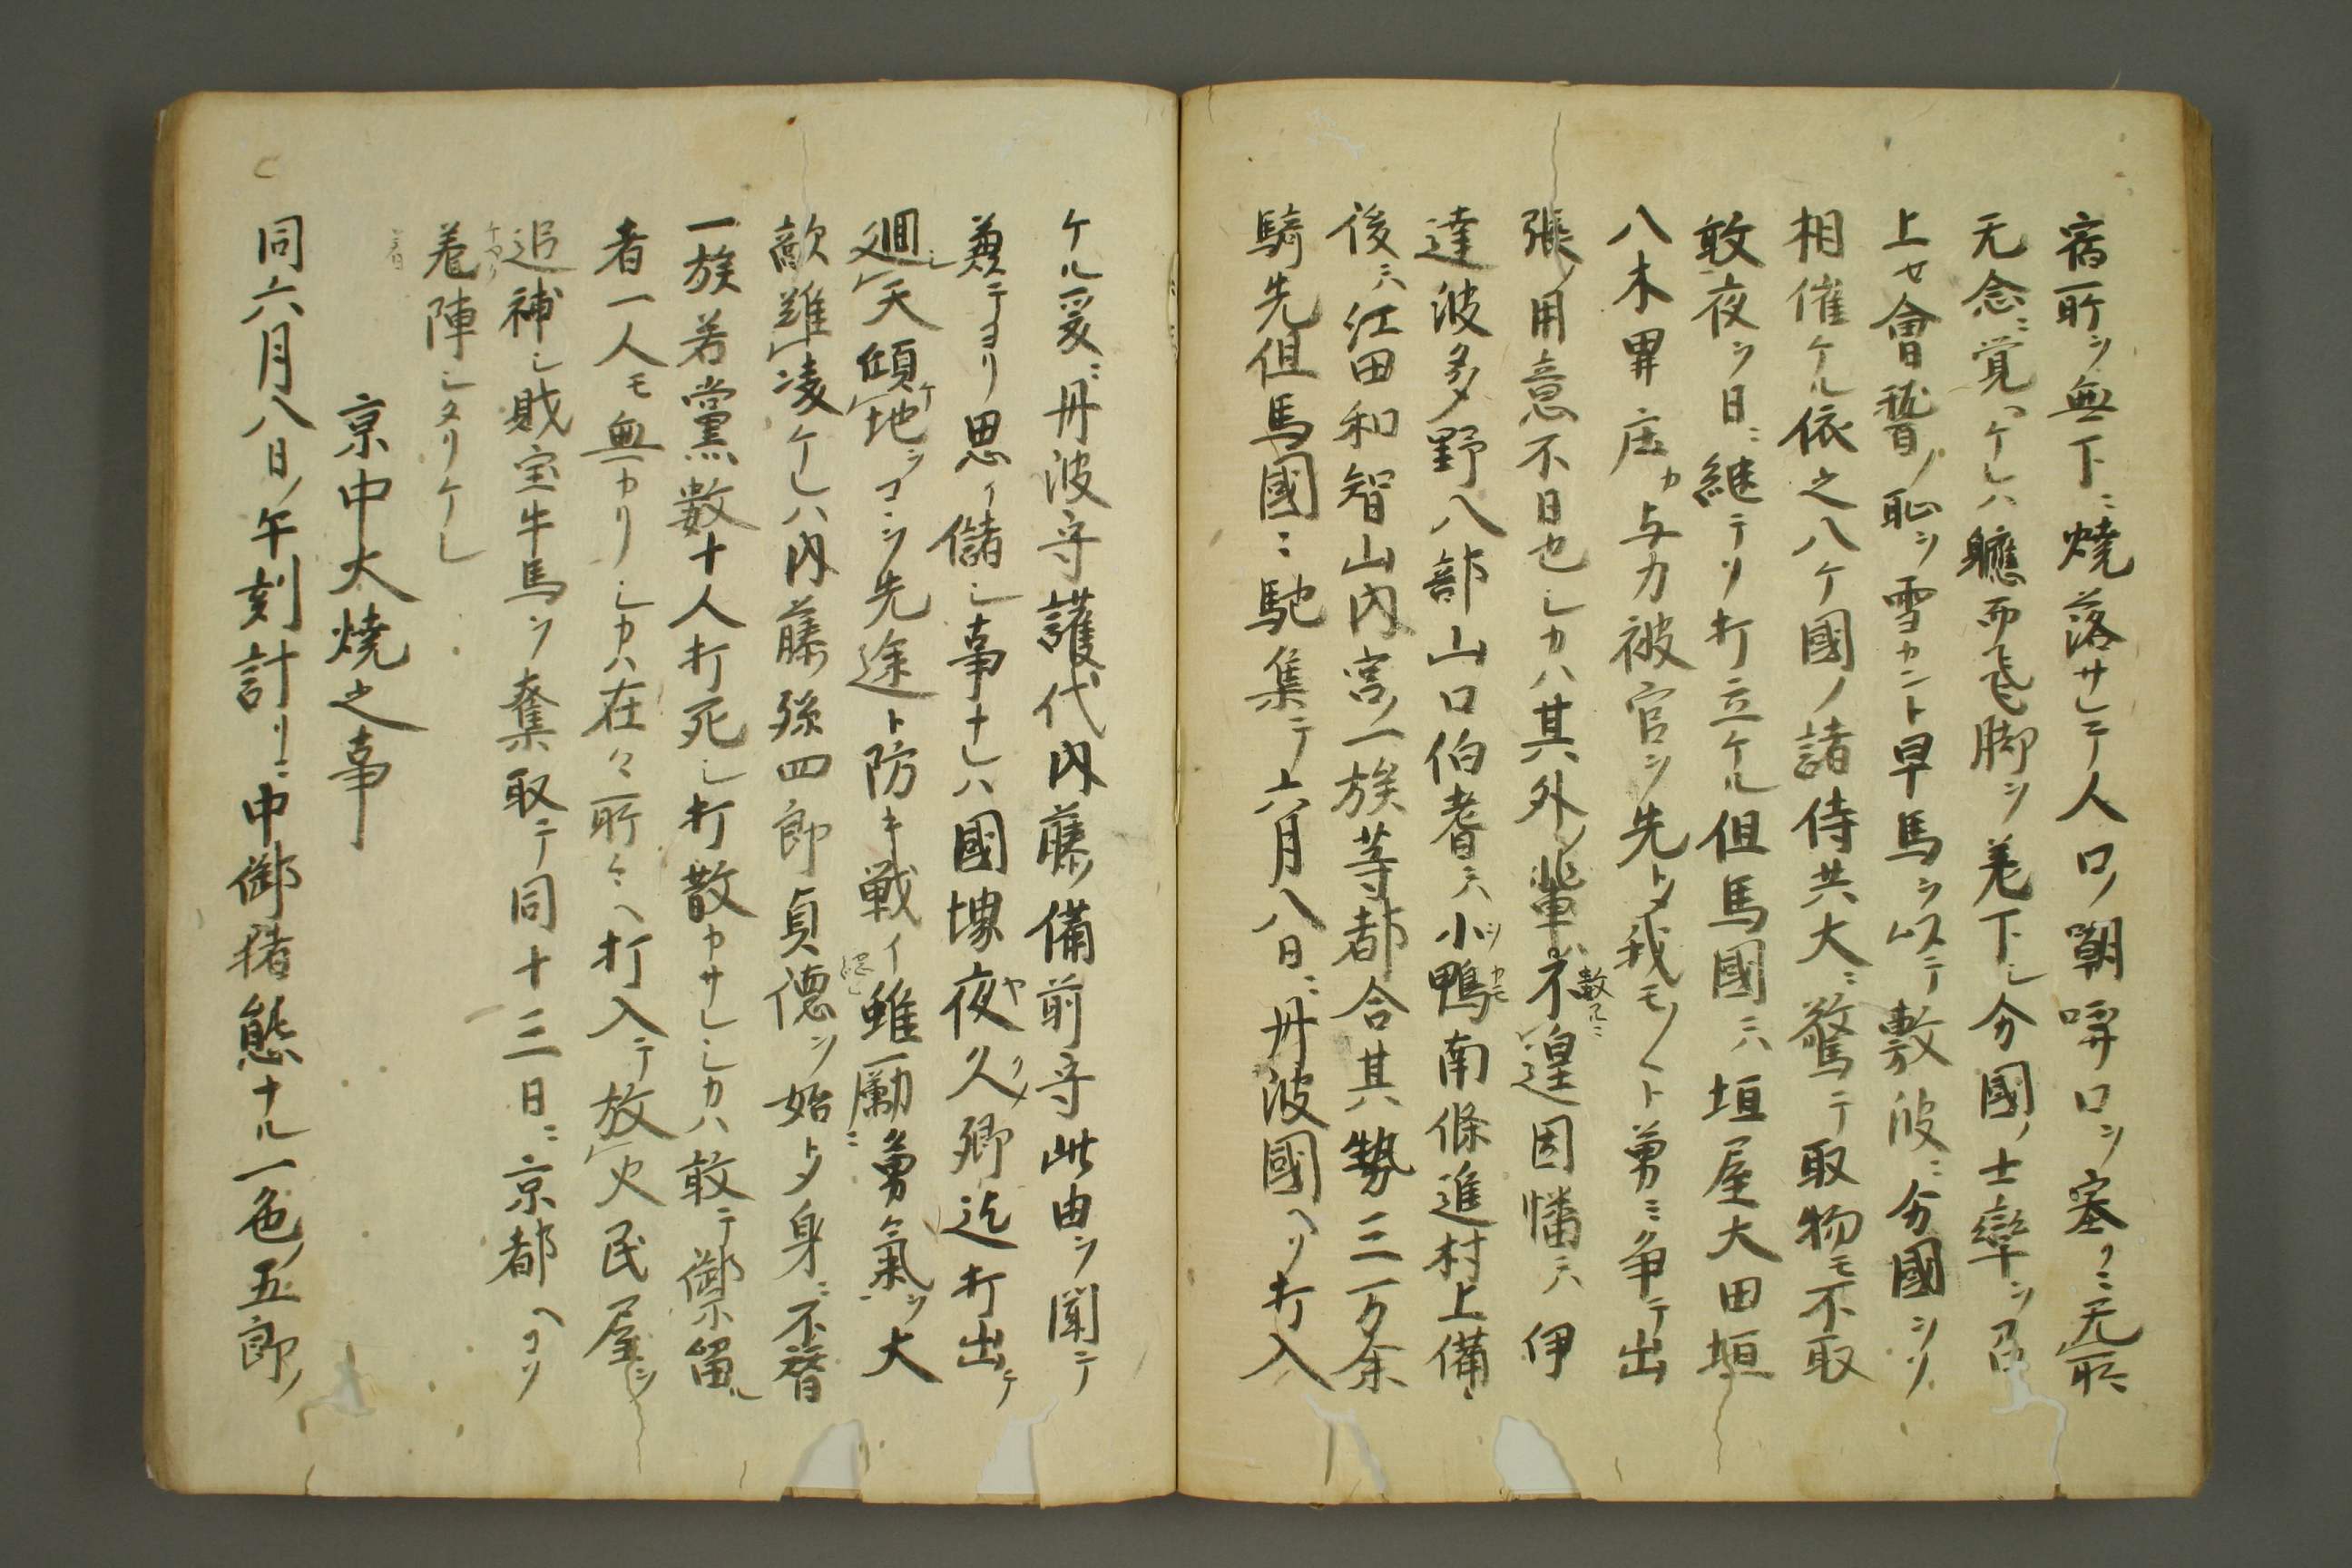 宿所ヲ無下ニ燒落サレテ人口ノ嘲哢口ヲ塞クニ无所ニ
无念ニ覚ヘケレハ軈而飛脚ヲ差下シ分國ノ士卒ヲ召
上セ會稽ノ恥ヲ雪カント早馬ヲ以テ敷波ニ分國ヨリ
相催ケル依之八ケ國ノ諸侍共大ニ驚テ取物モ不取
敢夜ヲ日ニ継テソ打立ケル但馬國ニハ垣屋大田垣
八木田井庄カ与力被官ヲ先トメ我モ〱ト勇ミ争テ出
張ノ用意不日也シカハ其外ノ輩ハ不遑敷フルニ因幡ニハ伊
達波多々野八部山口伯耆ニハ小鴨南條進村上備
後ニハ江田和智山内宮ノ一族等都合其勢三万余
騎先但馬國ニ馳集テ六月八日ニ丹波國ヘソ打入
ケル爰ニ丹波守護代内藤備前守此由ヲ聞テ
兼テヨリ思イ儲シ事ナレハ國堺夜久郷迄打出テ
廻シ天傾ケ地ヲコヽヲ先途ト防キ戦イ雖勵ニ勇氣ヲ大
敵難凌ケレハ内藤孫四郎貞徳ヲ始トメ身ニ不替
一族若黨數十人打死シ打散サレシカハ敢テ禦留ル
者一人モ無カリシカハ在々所々ヘ打入テ放火民屋ヲ
追補シ賎宝牛馬ヲ奪取テ同十三日ニ京都ヘコソ
着陣シタリケレ
京中大燒之事
同六月八日ノ午刻計リニ中御門猪熊ナル一色ノ五郎ノ